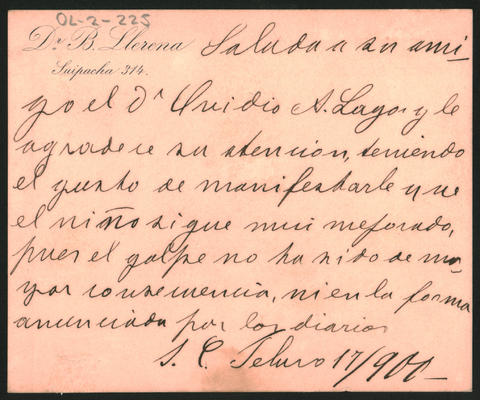 OL-2-225
Dr. B. Llerena Saluda a su ami-
Suipacha 314.
go el Dr Ovidio A. Lagos y le
agradece su atencion, teniendo
el gusto de manifestarle que
el niño sigue mui mejorado,
pues el golpe no ha sido de ma-
yor consecuencia, ni en la forma
anunciada por los diarios
S. C. Febrero 17/900